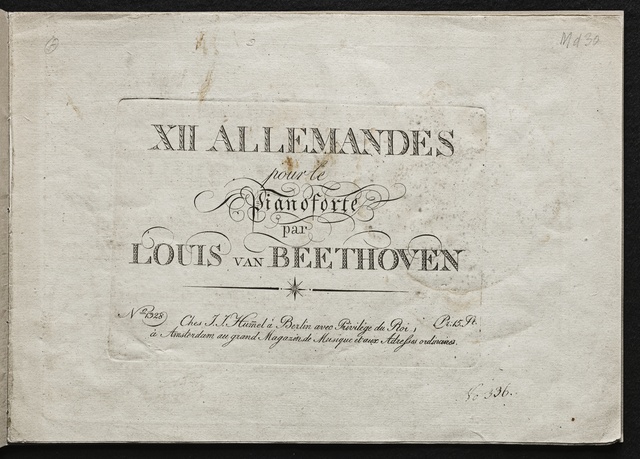 Md 32
XII ALLEMANDES
pour le
Pianoforte
par
LOUIS VAN BEETHOVEN
No. 1328 Ches J. J. Hummel à Berlin avec Privilége du Roi; Pr. 15
à Amsterdam au grand Magazin de Musique et aux Adresses ordinaires.
No 336.